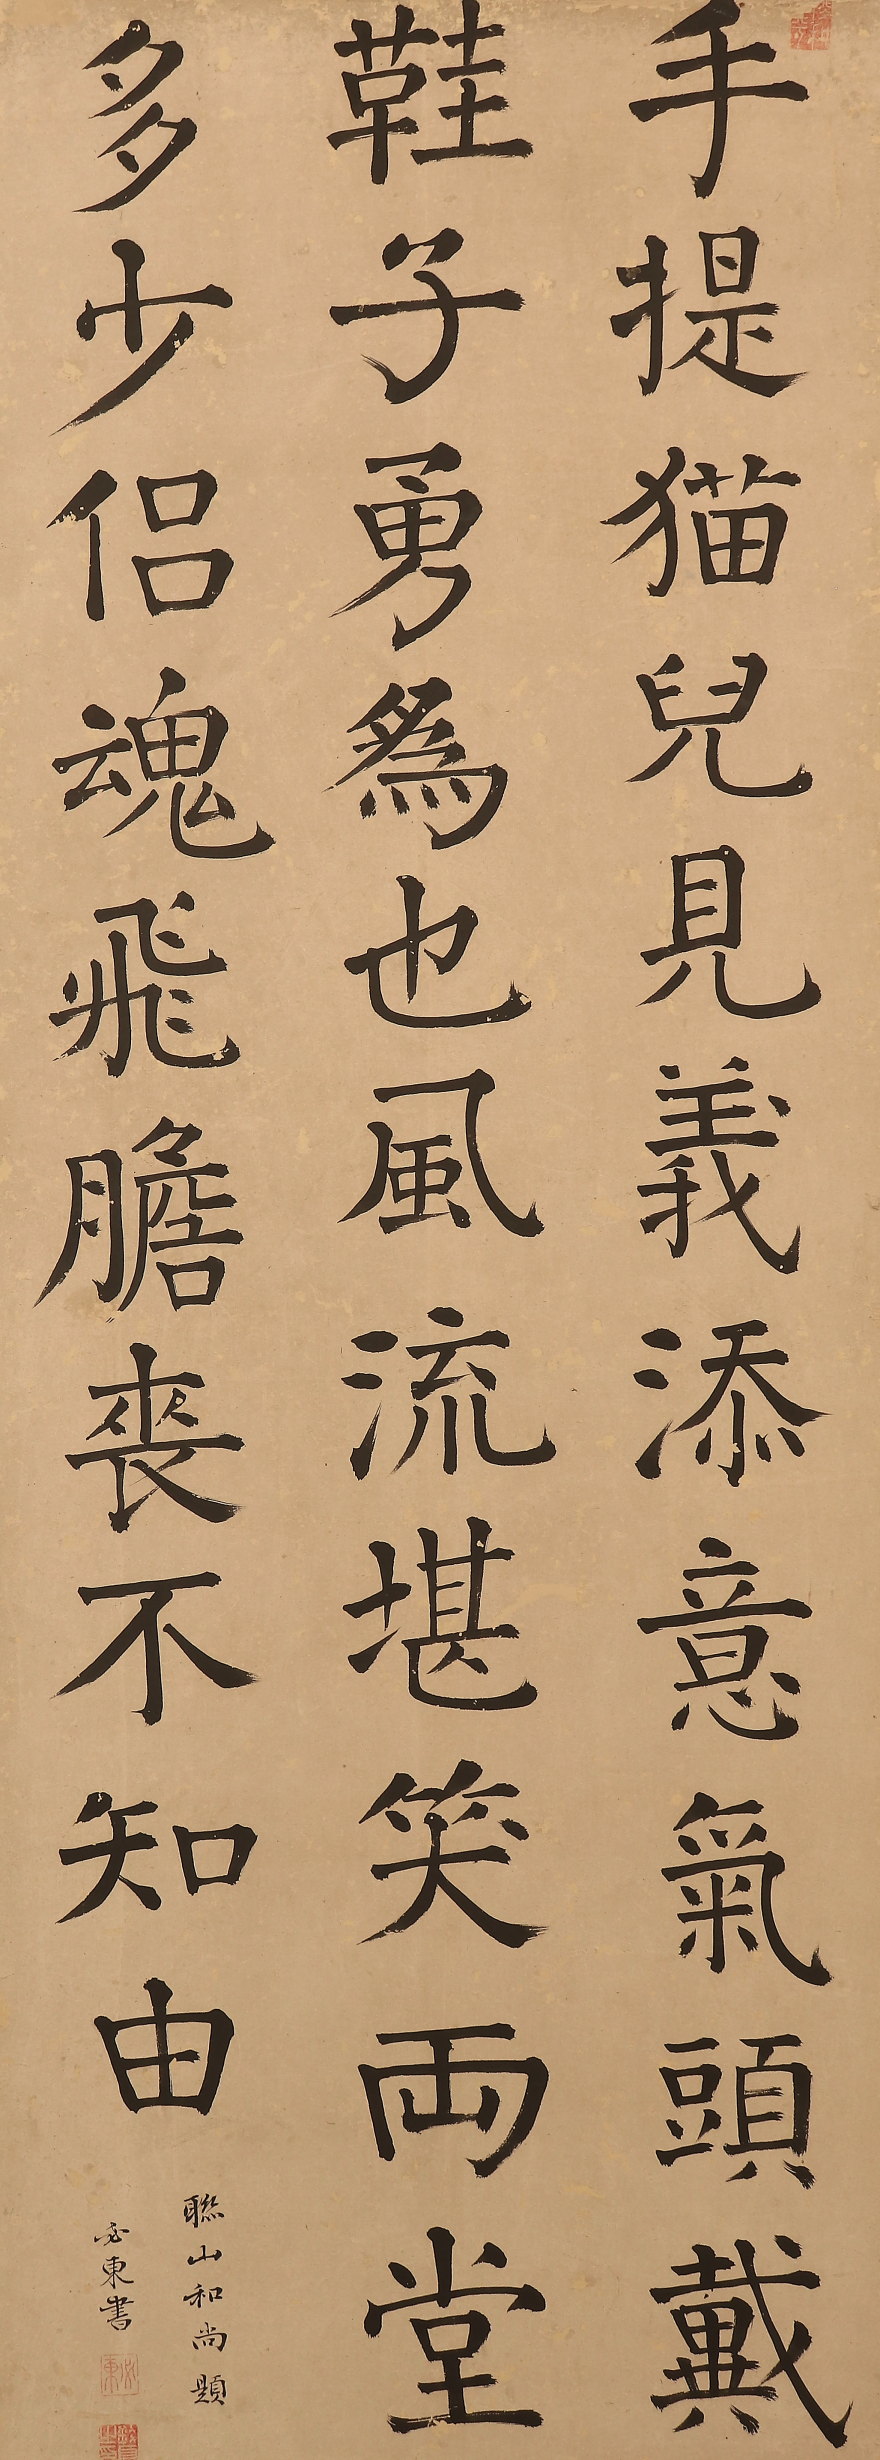 手提猫兒見義添意氣頭戴
鞋子勇為也風流堪笑両堂
多少侶魂飛膽喪不知由
聯山和尚題
東書